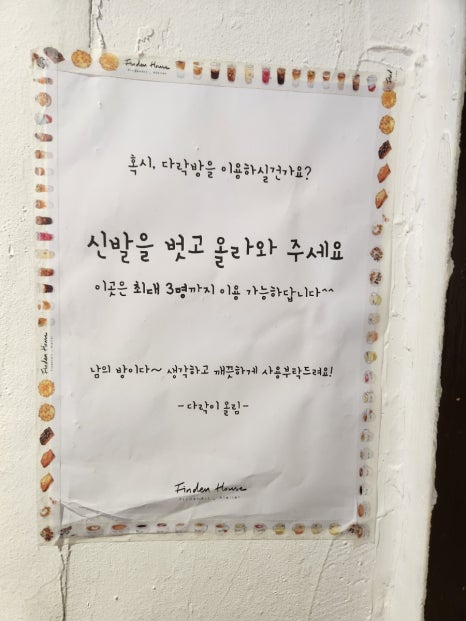 Finden House
혹시, 다락방을 이용하실건가요?
신발을 벗고 올라와 주세요
이곳은 최대 3명까지 이용 가능하답니다^^
남의 방이다~ 생각하고 깨끗하게 사용부탁드려요!
-다락이 올림-
Finden House
Finden House